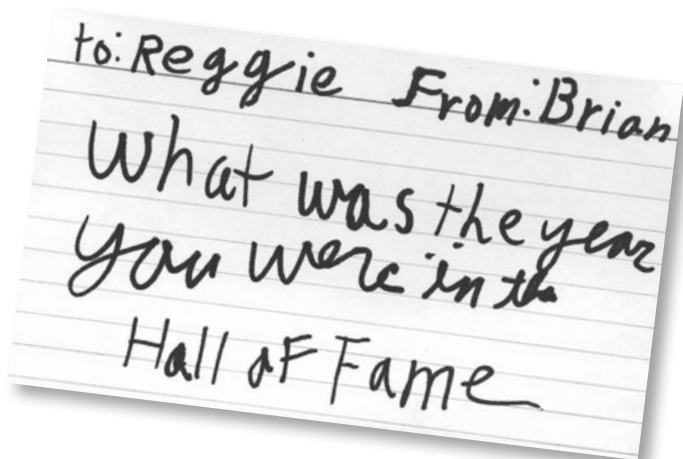 to: Reggie From: Brian
What was the year
you were in the
Hall of Fame